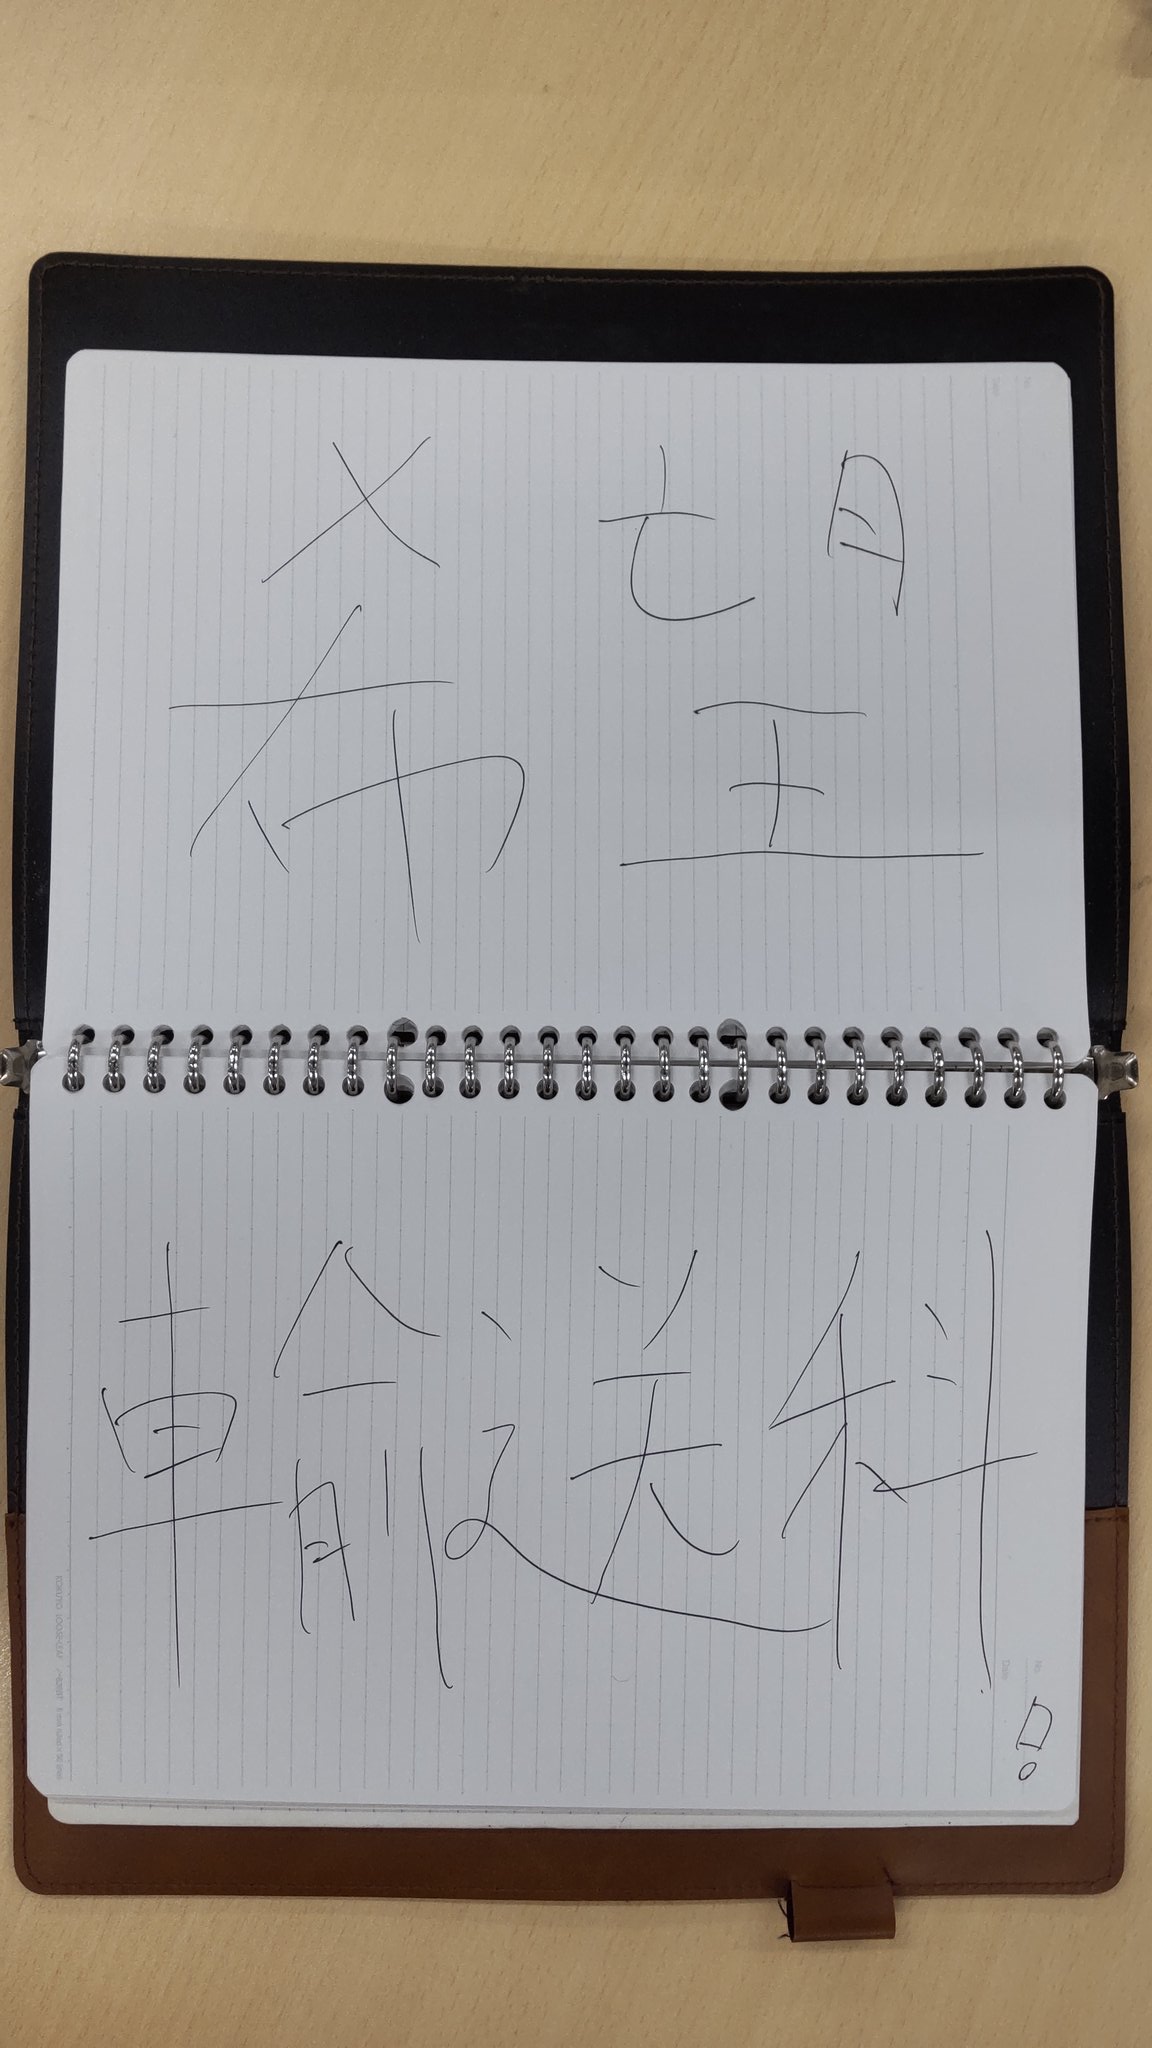 希望
輸送科!